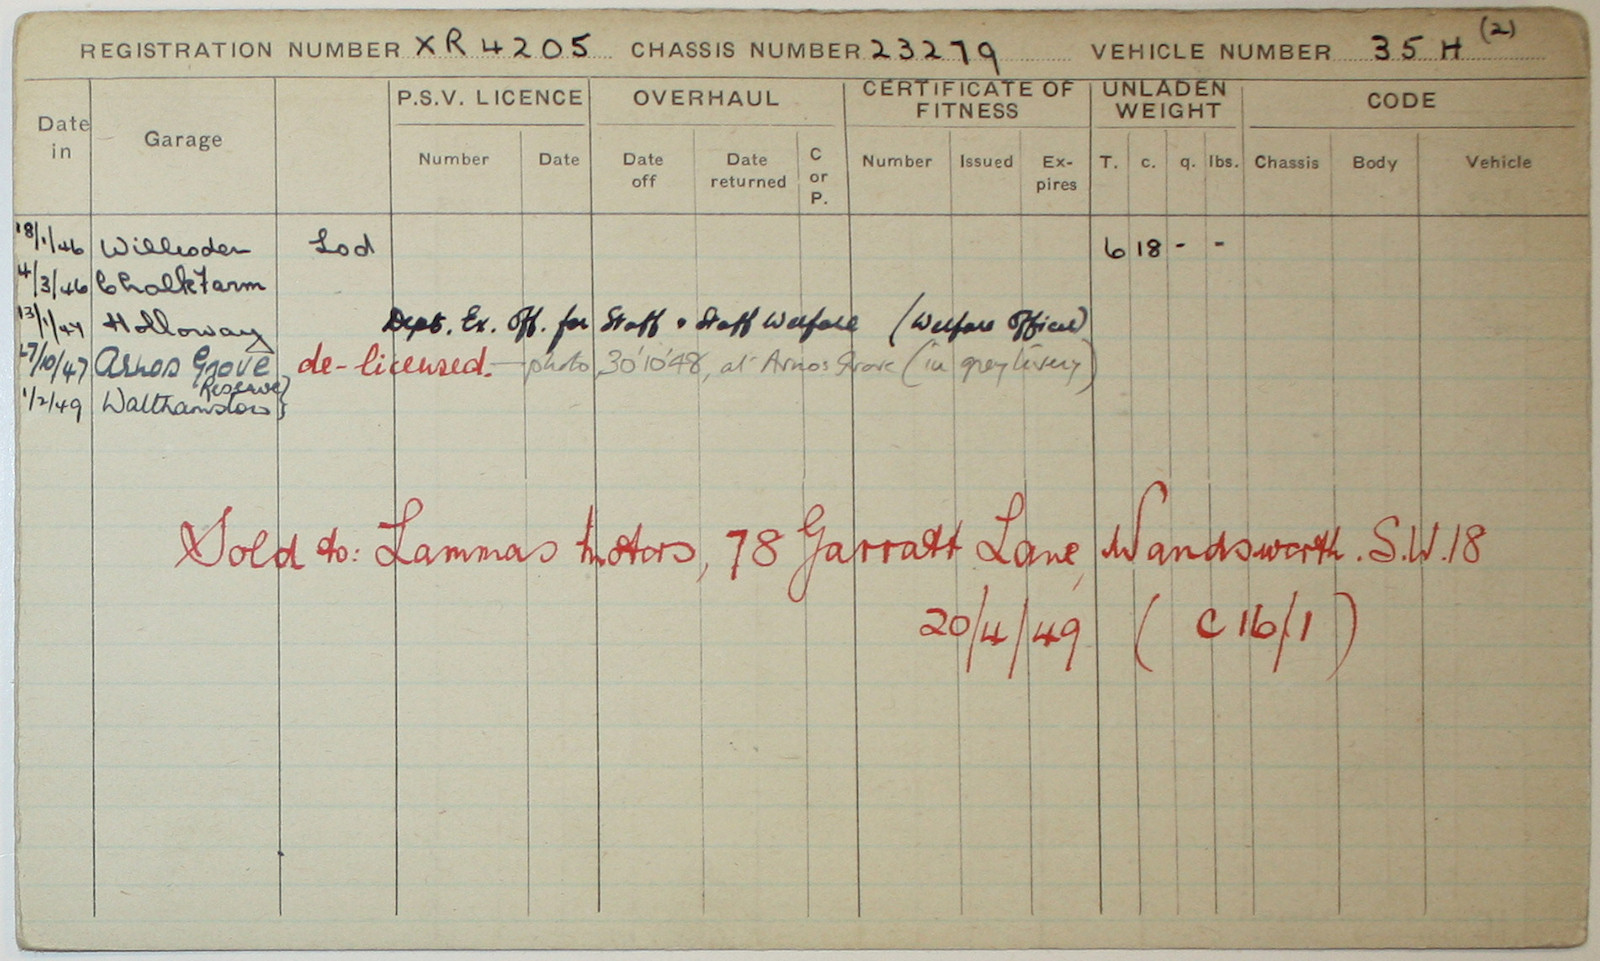 REGISTRATION NUMBER XR 4205 CHASSIS NUMBER 23279 VEHICLE NUMBER 35 H (2)
Date in Garage P.S.V. LICENCE OVERHAUL CERTIFICATE OF FITNESS UNLADEN WEIGHT CODE
Number Date Date off Date returned C or P. Number Issued Ex-pires T. c. q. lbs. Chassis Body Vehicle
18/1/46 Willesden Lod 6 18 - -
4/3/46 Chalk Farm
13/1/47 Holloway Dept. Ex. Off. for Staff & Staff Welfare (Welfare Officer)
27/10/47 Arnos Grove de-licensed. — photo 30'10'48, at Arnos Grove (in grey livery)
Reserve }
1/2/49 Walthamstow }
Sold to: Lammas Motors, 78 Garratt Lane, Wandsworth. S.W.18
20/4/49 (C 16/1)